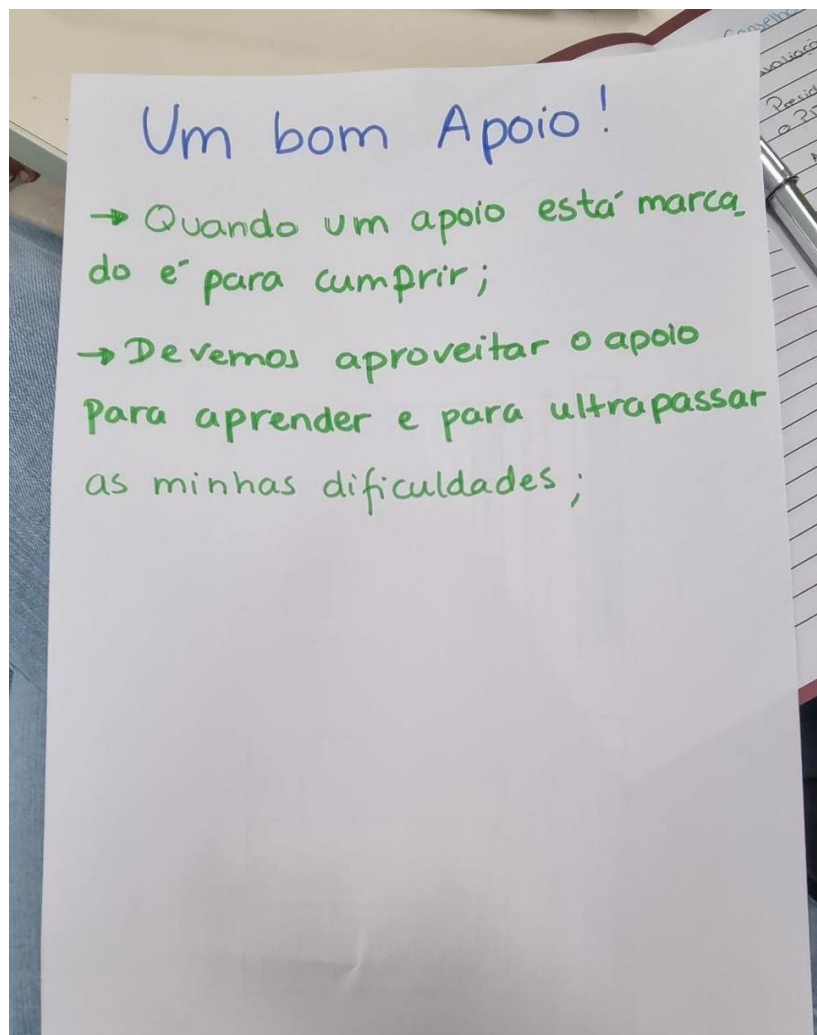 Um bom Apoio!
→ Quando um apoio está marca-
do é para cumprir;
→ Devemos aproveitar o apoio
para aprender e para ultrapassar
as minhas dificuldades;